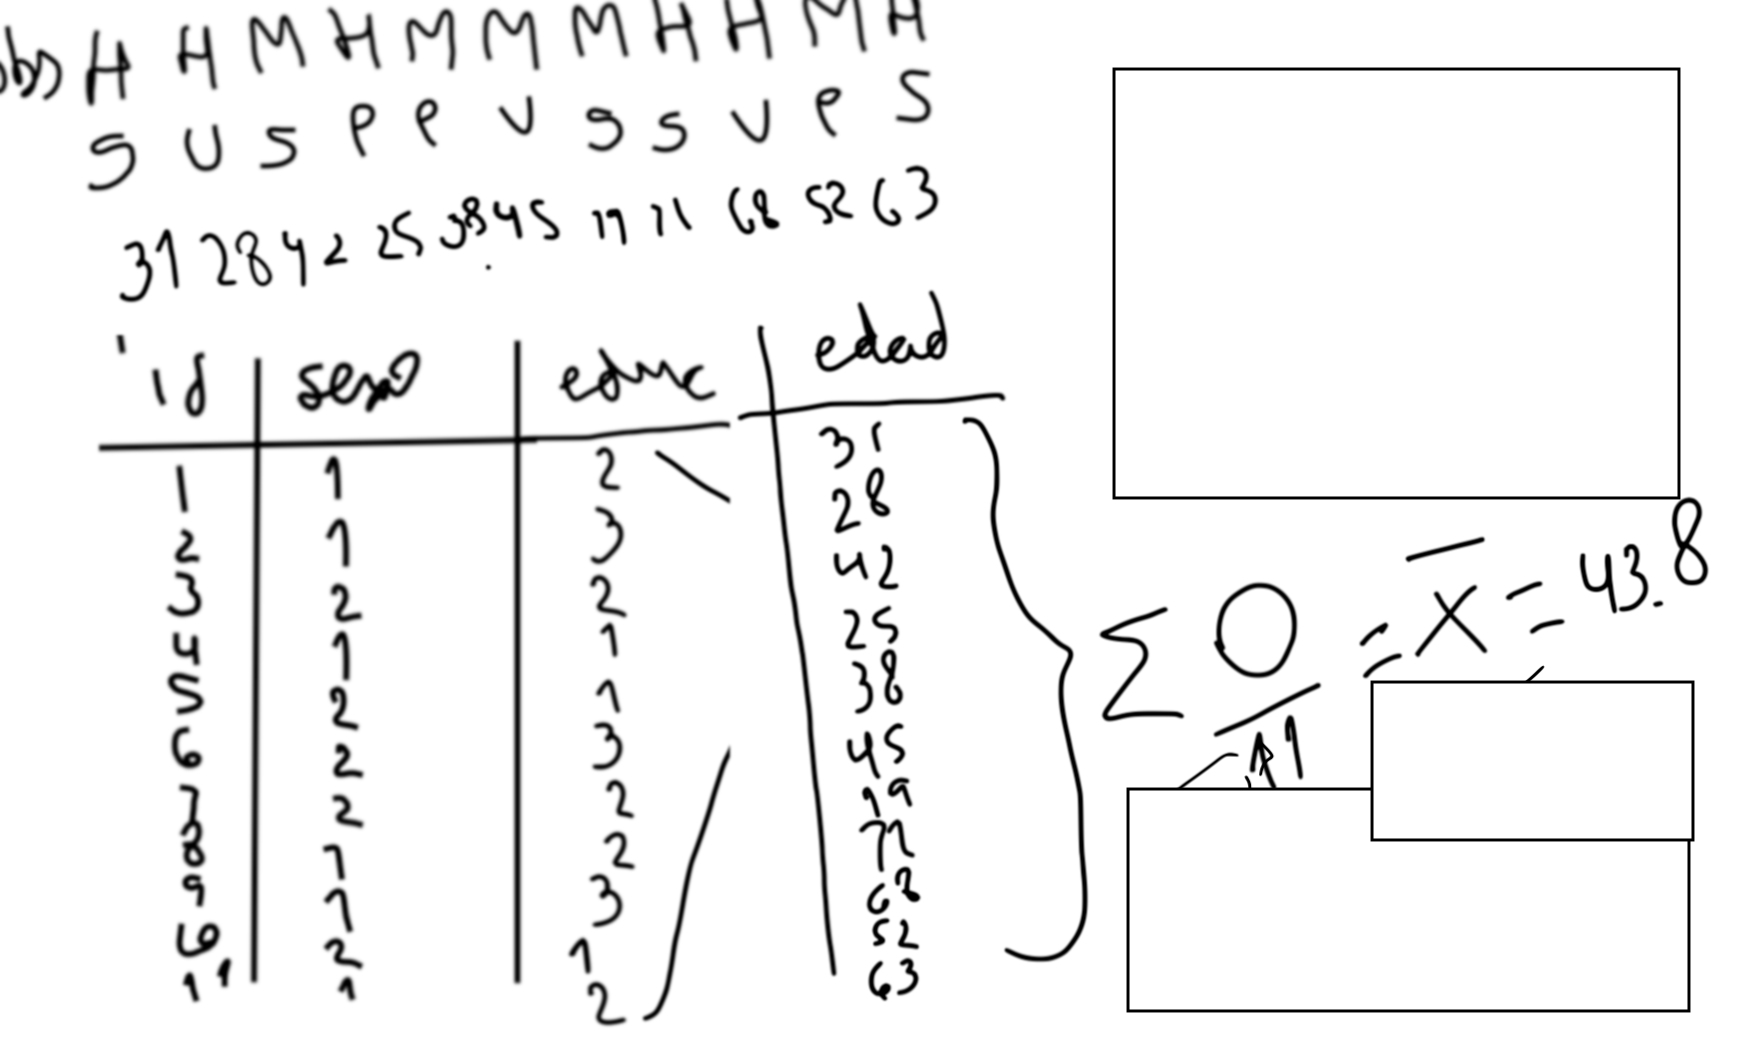 obs H H M H M M M H H M H
S U S P P U S S U P S
31 28 42 25 38 45 19 71 68 52 63
id sexo educ edad
1 1 2 31
2 1 3 28
3 2 2 42
4 1 1 25
5 2 1 38
6 2 3 45
7 2 2 19
8 1 2 71
9 1 3 68
10 2 1 52
11 1 2 63
Σ O / 11 = X̄ = 43.8